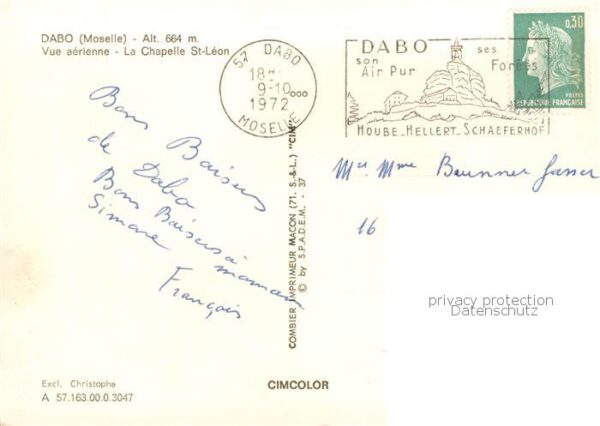 DABO (Moselle) - Alt. 664 m.
Vue aérienne - La Chapelle St-Léon
57 DABO
18H
9-10
1972
MOSELLE
DABO ses
son Forêts
Air Pur
HOUBE_HELLERT_SCHAEFERHOF
0,30
POSTES
REPUBLIQUE FRANÇAISE
Bons Baisers
de Dabo
Bons Baisers à maman
Simone
François
COMBIER IMPRIMEUR MACON (71. S.-&-L.) "CIM"
© by S.P.A.D.E.M. - 37
Mr Mme Brunner
16
privacy protection
Datenschutz
Excl. Christophe
A 57.163.00.0.3047
CIMCOLOR